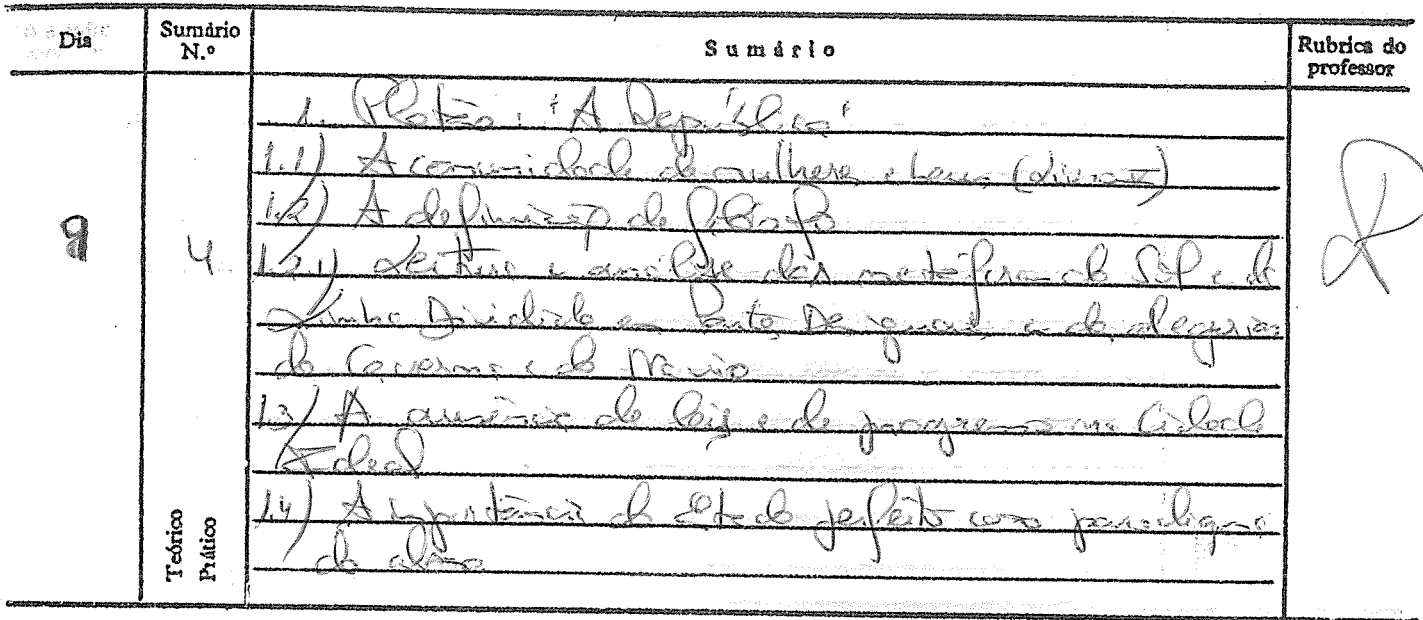 Dia
Sumário N.º
Sumário
Rubrica do professor
1. Platão: 'A República'
1.1) A comunidade de mulheres e bens (Livro V)
9
4
1.2) A definição de filósofo
1.2.1) Leitura e análise das metáforas do Sol e da
Linha Dividida em Partes Desiguais e da alegoria
da Caverna e do Navio
1.3) A ausência de leis e de progresso na Cidade
Ideal
1.4) A importância do Estado perfeito como paradigma
da alma
Teórico
Prático